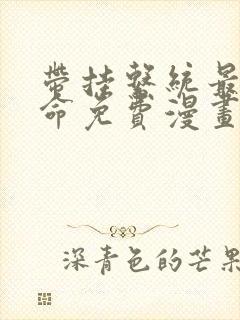 帶挂系統最
命免費漫畫
深青色的芒果